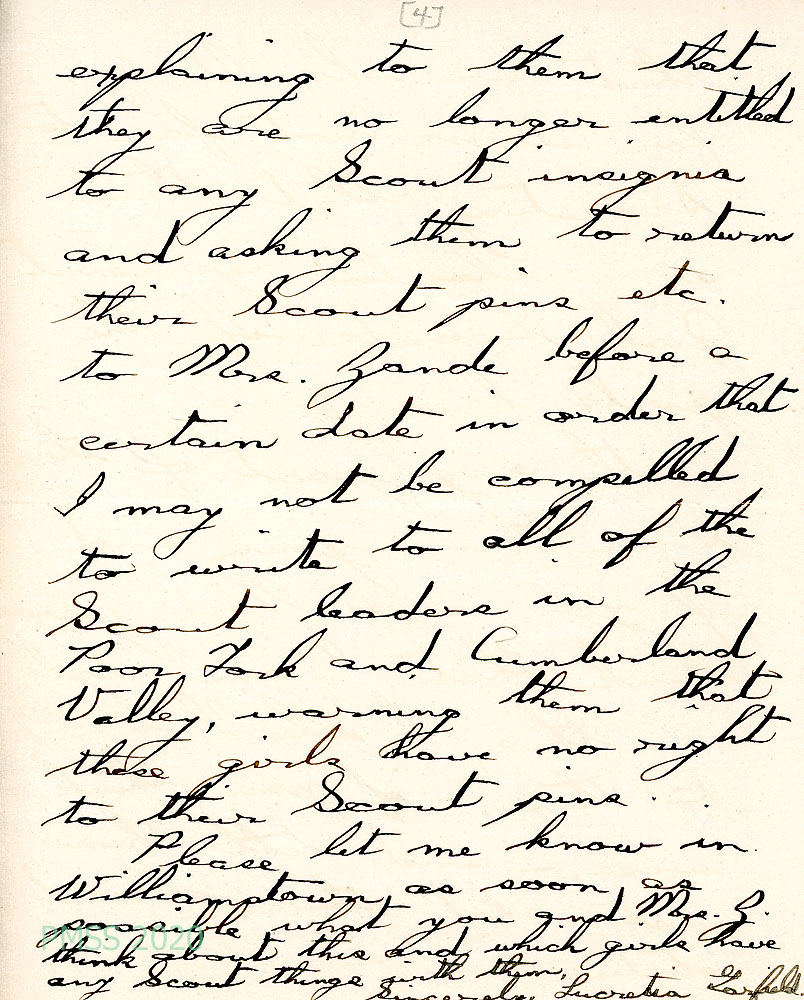 [4]
explaining to them that
they are no longer entitled
to any Scout insignia
and asking them to return
their Scout pins etc.
to Mrs. Zande before a
certain date in order that
I may not be compelled
to write to all of the
Scout leaders in the
Poor Fork and Cumberland
Valley, warning them that
these girls have no right
to their Scout pins.
Please let me know in
Williamstown as soon as
possible what you and Mrs. Z.
think about this and which girls have
any Scout things with them.
Sincerely, Lucretia Garfield.
PMSS 2020